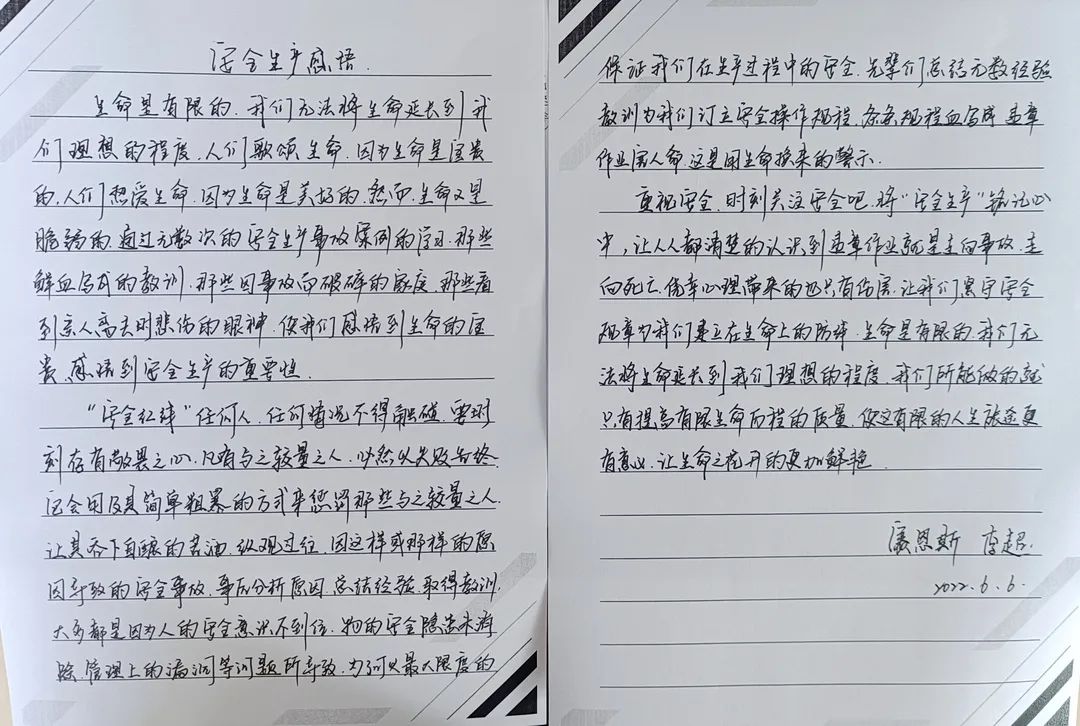 安全生产感悟
生命是有限的,我们无法将生命延长到我
们理想的程度,人们歌颂生命,因为生命是宝贵
的,人们热爱生命,因为生命是美好的,然而,生命又是
脆弱的,通过无数次的安全生产事故案例的学习,那些
鲜血写成的教训,那些因事故而破碎的家庭,那些看
到亲人离去时悲伤的眼神,使我们感悟到生命的宝
贵,感悟到安全生产的重要性.
"安全红线"任何人,任何情况不得触碰,要时
刻存有敬畏之心,凡有与之较量之人,必然以失败告终.
它会用及其简单粗暴的方式来惩罚那些与之较量之人.
让其吞下自酿的苦酒,纵观过往,因这样或那样的原
因导致的安全事故,事后分析原因,总结经验,取得教训,
大多都是因为人的安全意识不到位,物的安全隐患未消
除,管理上的漏洞等问题所导致,为了最大限度的
保证我们在生产过程中的安全,先辈们总结无数经验
教训为我们订立安全操作规程,条条规程血写成,违章
作业害人命,这是用生命换来的警示.
重视安全,时刻关注安全吧,将"安全生产"铭记心
中,让人人都清楚的认识到违章作业就是走向事故,走
向死亡,侥幸心理带来的也只有伤害,让我们遵守安全
规章为我们建立在生命上的防线,生命是有限的,我们无
法将生命延长到我们理想的程度,我们所能做的就
只有提高有限生命历程的质量,使这有限的人生旅途更
有意义,让生命之花开的更加鲜艳.
康恩斯 李超.
2022.6.6.